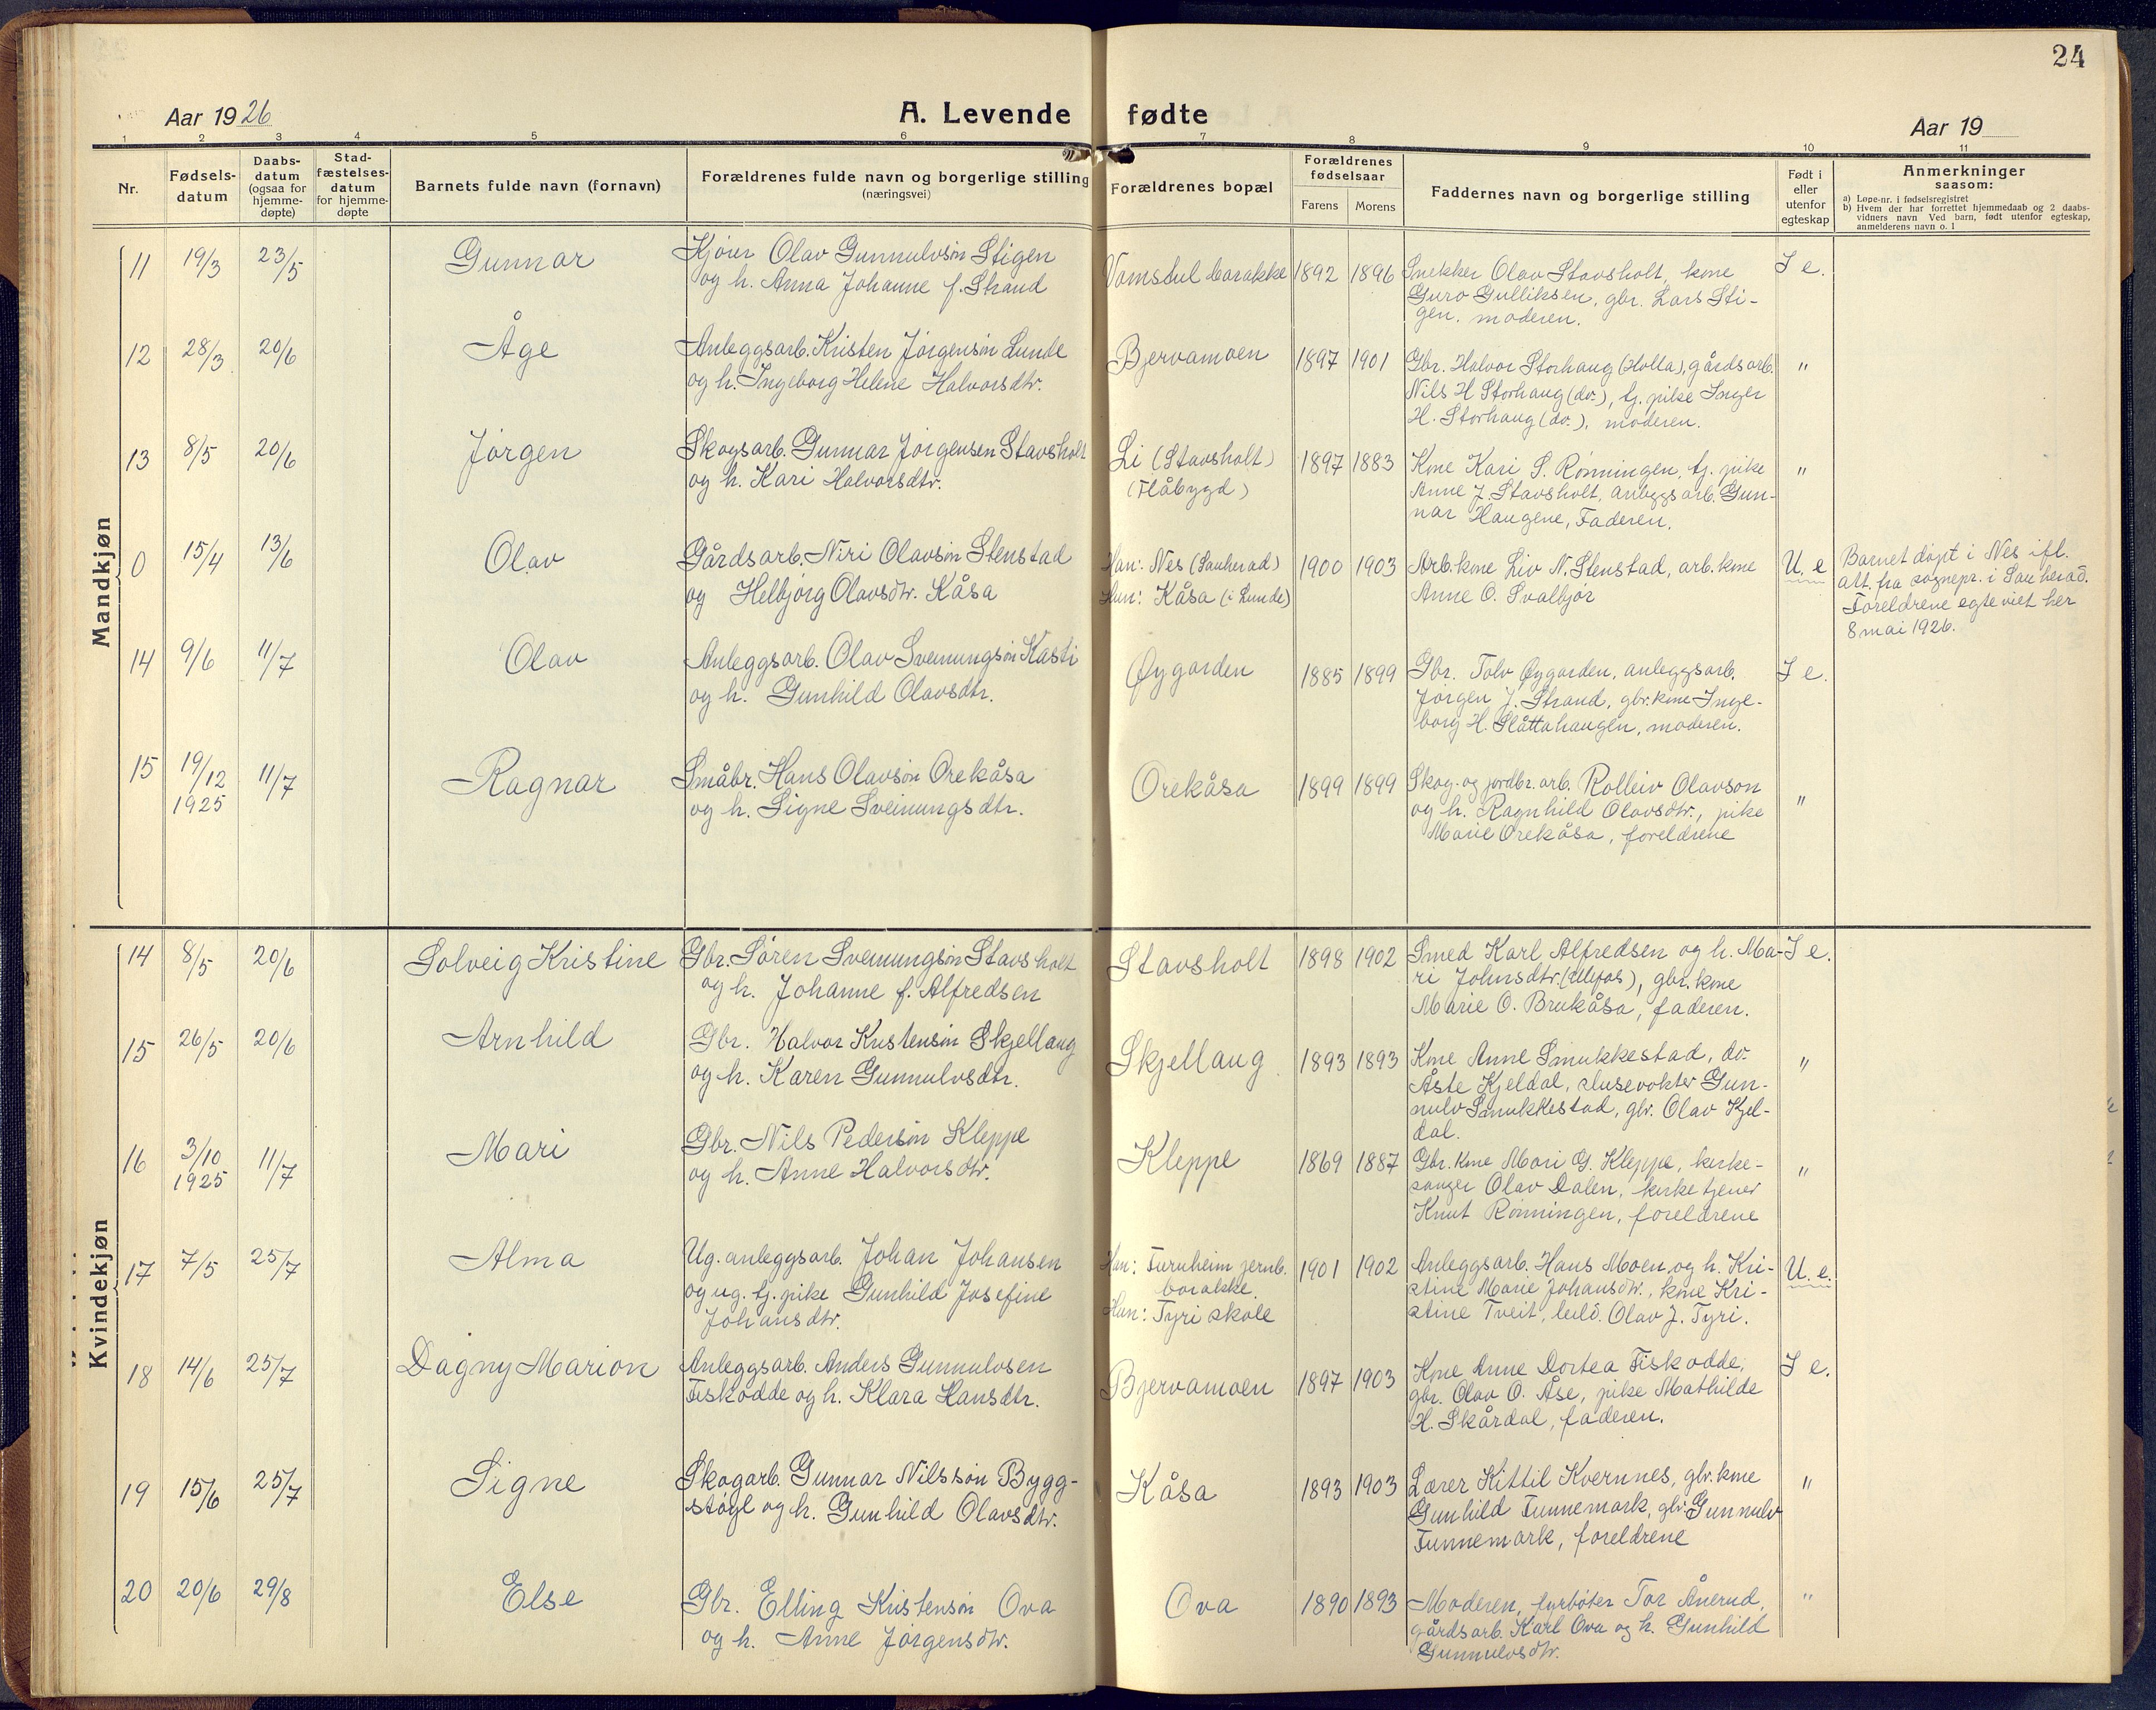 24
Aar 1926
A. Levende fødte
Aar 19
1 2 3 4 5 6 7 8 9 10 11
Nr.
Fødsels-
datum
Daabs-
datum
(ogsaa for
hjemme-
døpte)
Stad-
fæstelses-
datum
for hjemme-
døpte
Barnets fulde navn (fornavn)
Forældrenes fulde navn og borgerlige stilling
(næringsvei)
Forældrenes bopæl
Forældrenes
fødselsaar
Farens Morens
Faddernes navn og borgerlige stilling
Født i
eller
utenfor
egteskap
Anmerkninger
saasom:
a) Løpe-nr. i fødselsregistret
b) Hvem der har forrettet hjemmedaab og 2 daabs-
vidners navn Ved barn, født utenfor egteskap,
anmelderens navn o. l
Mandkjøn
11 19/3 23/5 Gunnar
Kjører Olav Gunnulvsøn Stigen
og h. Anna Johanne f. Strand
Vamsdul barakke 1892 1896
Snekker Olav Stavsholt, kone
Guro Gulliksen, gbr. Lars Sti-
gen. moderen.
I e.
12 28/3 20/6 Åge
Anleggsarb. Kristen Jørgensøn Lunde
og h. Ingeborg Helene Halvorsdtr.
Bjervamoen 1897 1901
Gbr. Halvor Storhaug (Holla), gårdsarb.
Nils H Storhaug (do.), tj. pike Inger
H. Storhaug (do.), moderen.
"
13 8/5 20/6 Jørgen
Skogsarb. Gunnar Jørgensen Stavsholt
og h. Kari Halvorsdtr.
Li (Stavsholt)
(Flåbygd)
1897 1883
Kone Kari S. Rønningen, tj. pike
Anne J. Stavsholt, anleggsarb. Gun-
nar Haugene, Faderen.
"
0 15/4 13/6 Olav
Gårdsarb. Niri Olavsøn Stenstad
og Helbjørg Olavsdtr. Kåsa
Han: Nes (Sauherad)
Hun: Kåsa (i Lunde)
1900 1903
Arb. kone Liv N. Stenstad, arb. kone
Anne O. Svalbjør
U. e
Barnet døpt i Nes ifl.
att. fra sognepr. i Sauherad.
Foreldrene egteviet her
8 mai 1926.
14 9/6 11/7 Olav
Anleggsarb. Olav Sveinungsøn Kasti
og h. Gunhild Olavsdtr.
Øygarden 1885 1899
Gbr. Tolv Øygarden, anleggsarb.
Jørgen J. Strand, gbr. kone Inge-
borg H. Slåttahaugen, moderen.
I e.
15 19/12 1925 11/7 Ragnar
Småbr. Hans Olavsøn Orekåsa
og h. Signe Sveinungsdtr.
Orekåsa 1899 1899
Skog- og jordbr. arb. Rolleiv Olavson
og h. Ragnhild Olavsdtr., pike
Marie Orekåsa, foreldrene
"
Kvindekjøn
14 8/5 20/6 Solveig Kristine
Gbr. Søren Sveinungsøn Stavsholt
og h. Johanne f. Alfredsen
Stavsholt 1898 1902
Smed Karl Alfredsen og h. Ma-
ri Johnsdtr. (Ulefos), gbr. kone
Marie O. Brukåsa, faderen.
I e.
15 26/5 20/6 Arnhild
Gbr. Halvor Kristensøn Skjellaug
og h. Karen Gunnulvsdtr.
Skjellaug 1893 1893
Kone Anne Smukkestad, do.
Åste Kjeldal, slusevokter Gun-
nulv Smukkestad, gbr. Olav Kjel-
dal.
"
16 3/10 1925 11/7 Mari
Gbr. Nils Pedersøn Kleppe
og h. Anne Halvorsdtr.
Kleppe 1869 1887
Gbr. kone Mari G. Kleppe, kirke-
sanger Olav Dalen, kirketjener
Knut Rønningen, foreldrene
"
17 7/5 25/7 Alma
Ug. anleggsarb. Johan Johansen
og ug. tj. pike Gunhild Josefine
Johansdtr.
Han: Furuheim jernb.
barakke.
Hun: Tyri skole
1901 1902
Anleggsarb. Hans Moen og h. Kri-
stine Marie Johansdtr., kone Kri-
stine Tveit, leil. Olav J. Tyri.
U. e.
18 14/6 25/7 Dagny Marion
Anleggsarb. Anders Gunnulvsen
Fiskodde og h. Klara Hansdtr.
Bjervamoen 1897 1903
Kone Anne Dortea Fiskodde,
gbr. Olav O. Åse, pike Mathilde
H. Skårdal, faderen.
I e.
19 15/6 25/7 Signe
Skogarb. Gunnar Nilssøn Bygg-
støyl og h. Gunhild Olavsdtr.
Kåsa 1893 1903
Lærer Kittil Kvernnes, gbr. kone
Gunhild Tunnemark, gbr. Gunnulv
Tunnemark, foreldrene
"
20 20/6 29/8 Else
Gbr. Elling Kristensøn Ova
og h. Anne Jørgensdtr.
Ova 1890 1893
Moderen, fyrbøter Tor Ånerud,
gårdsarb. Karl Ova og h. Gunhild
Gunnulvsdtr.
"